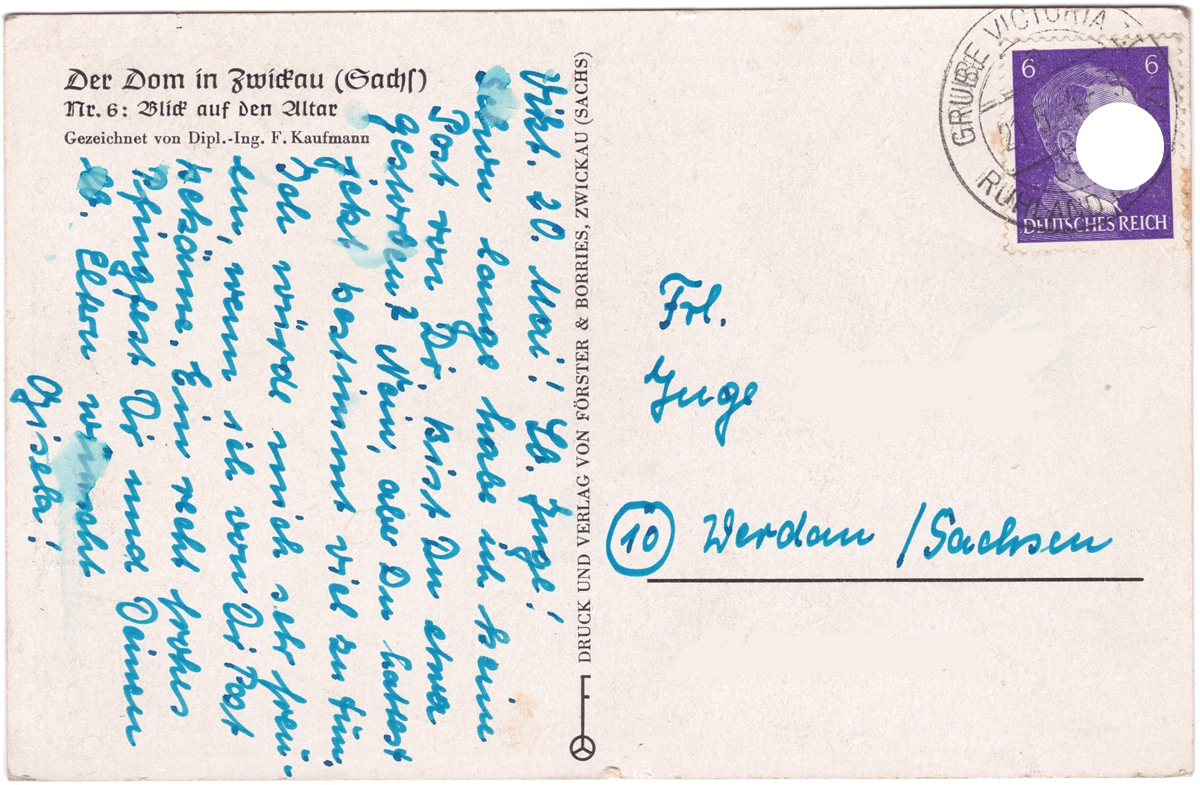 Der Dom in Zwickau (Sachs)
Nr. 6: Blick auf den Altar
Gezeichnet von Dipl.-Ing. F. Kaufmann
Vikt. 20. Mai! Lb. Inge!
Schon lange habe ich keine
Post von Dir. Bist Du etwa
gestorben? Nein, aber Du hattest
jetzt bestimmt viel zu tun.
Ich würde mich sehr freu-
en, wenn ich von Dir Post
bekäme. Ein recht frohes
Pfingfest Dir und Deinen
lb. Eltern wünscht
Gisela!
DRUCK UND VERLAG VON FÖRSTER & BORRIES, ZWICKAU (SACHS)
GRUBE VICTORIA
RUHLAND
6 6
DEUTSCHES REICH
Frl.
Inge
10 Werdau /Sachsen